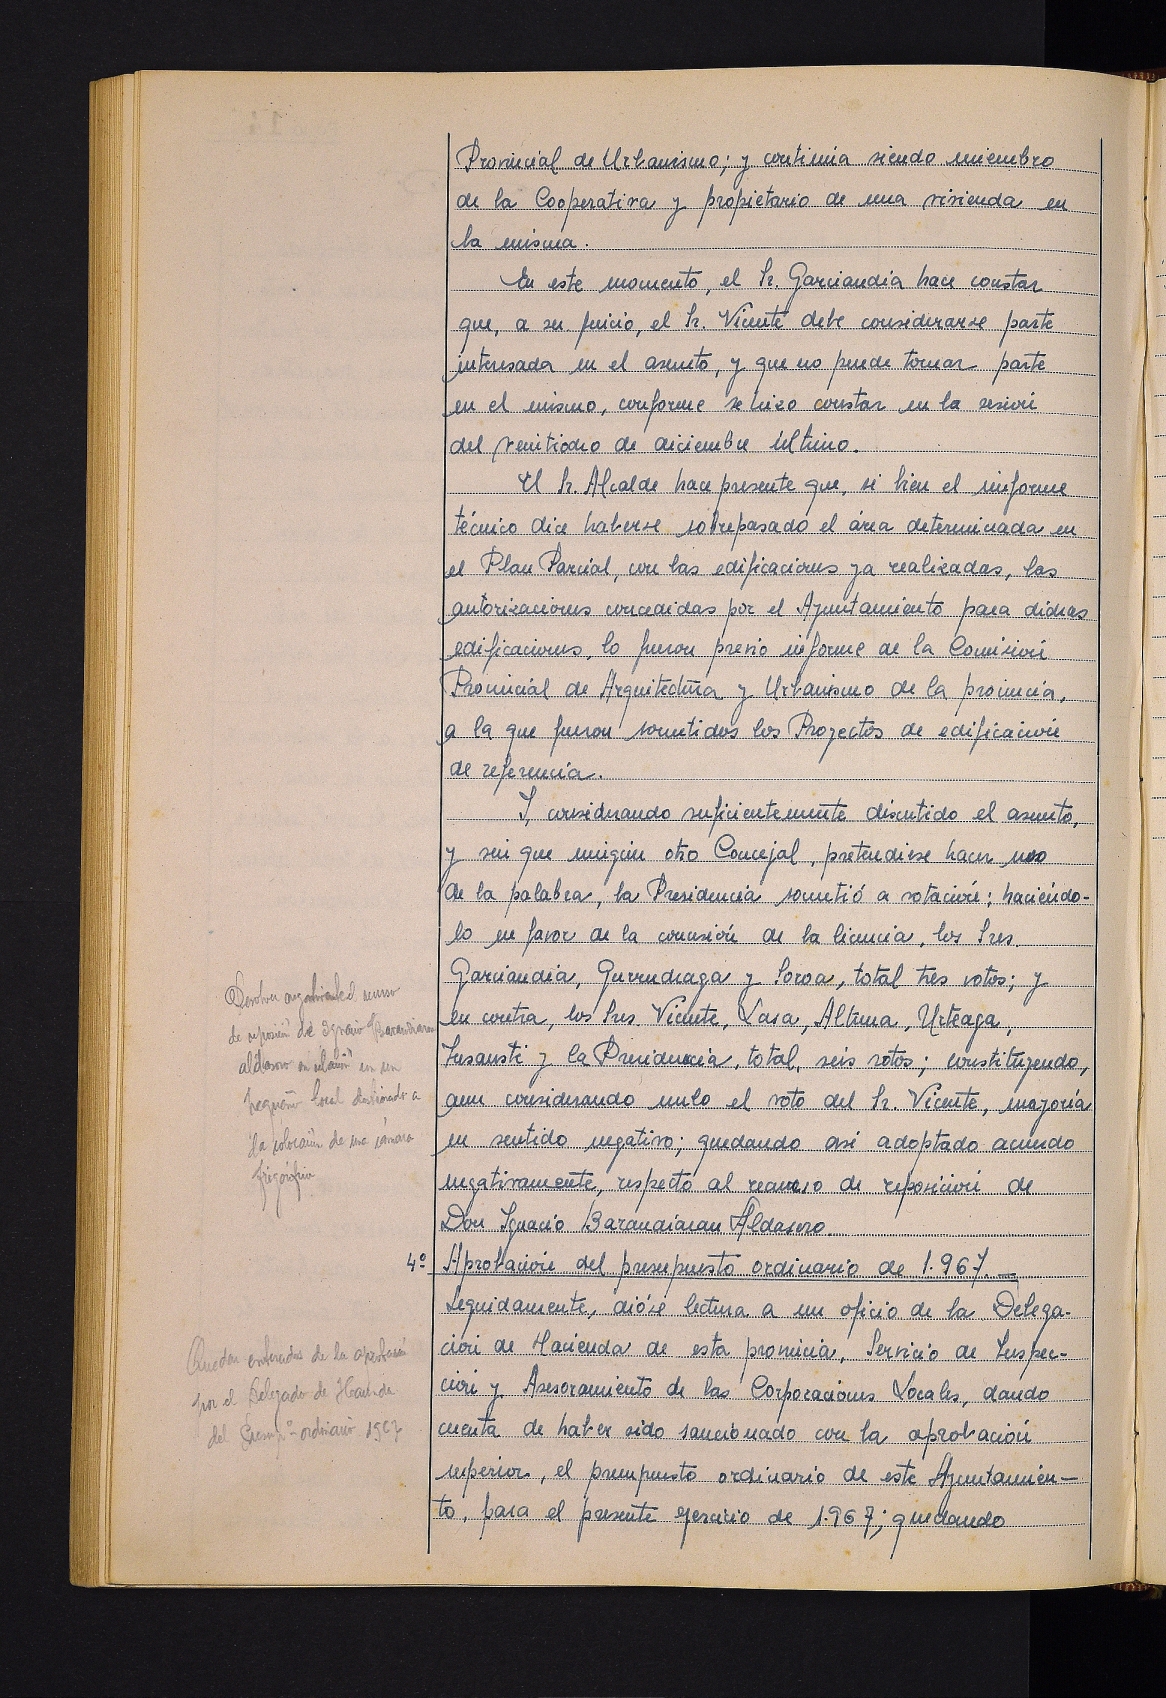 Provincial de Urbanismo; y continúa siendo miembro
de la Cooperativa y propietario de una vivienda en
la misma.
En este momento, el Sr. Garciandia hace constar
que, a su juicio, el Sr. Vicente debe considerarse parte
interesada en el asunto, y que no puede tomar parte
en el mismo, conforme se hizo constar en la sesión
del veintiocho de diciembre último.
El Sr. Alcalde hace presente que, si bien el informe
técnico dice haberse sobrepasado el área determinada en
el Plan Parcial, con las edificaciones ya realizadas, las
autorizaciones concedidas por el Ayuntamiento para dichas
edificaciones, lo fueron previo informe de la Comisión
Provincial de Arquitectura y Urbanismo de la provincia,
a la que fueron sometidos los Proyectos de edificación
de referencia.
Y, considerando suficientemente discutido el asunto,
y sin que ningún otro Concejal, pretendiese hacer uso
de la palabra, la Presidencia sometió a votación; haciéndo-
lo en favor de la concesión de la licencia, los Sres.
Garciandia, Gurruchaga y Soroa, total tres votos; y
en contra, los Sres. Vicente, Lasa, Altuna, Urteaga,
Insausti y la Presidencia, total, seis votos; constituyendo,
aun considerando nulo el voto del Sr. Vicente, mayoría
en sentido negativo; quedando así adoptado acuerdo
negativamente, respecto al recurso de reposición de
Don Ignacio Barandiaran Aldasoro.
Resolver negativamente el recurso
de reposición de Ignacio Barandiaran
Aldasoro en relación con un
pequeño local destinado a
la colocación de una cámara
frigorífica
4º Aprobación del presupuesto ordinario de 1.967.—
Seguidamente, dióse lectura a un oficio de la Delega-
ción de Hacienda de esta provincia, Servicio de Inspec-
ción y Asesoramiento de las Corporaciones Locales, dando
cuenta de haber sido sancionado con la aprobación
superior, el presupuesto ordinario de este Ayuntamien-
to, para el presente ejercicio de 1.967; quedando
Quedar enterados de la aprobación
por el Delegado de Hacienda
del Presupº ordinario 1967